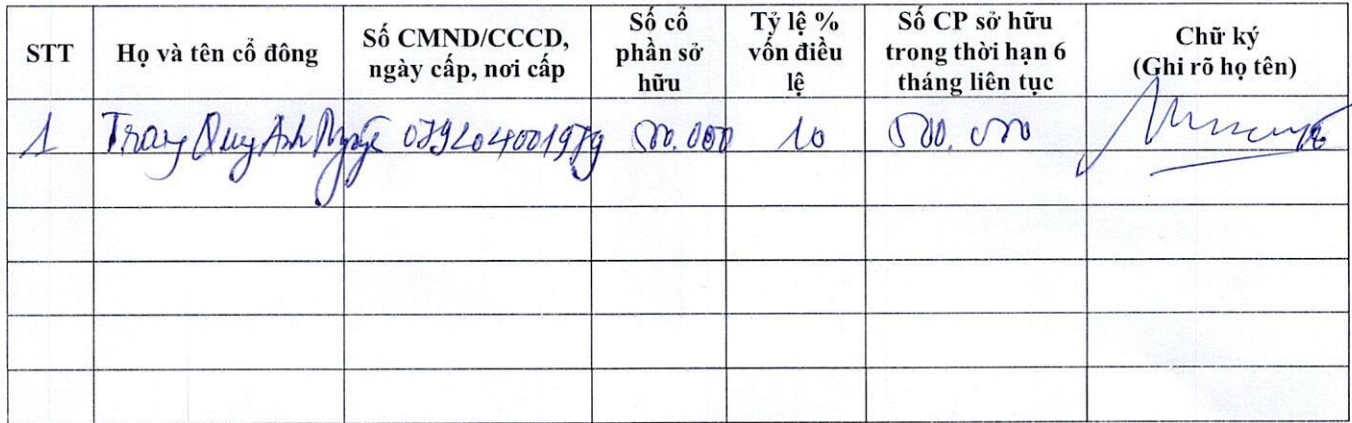 STT Họ và tên cổ đông Số CMND/CCCD, ngày cấp, nơi cấp Số cổ phần sở hữu Tỷ lệ % vốn điều lệ Số CP sở hữu trong thời hạn 6 tháng liên tục Chữ ký (Ghi rõ họ tên)
1 Quy Anh 500.000 10 500.000